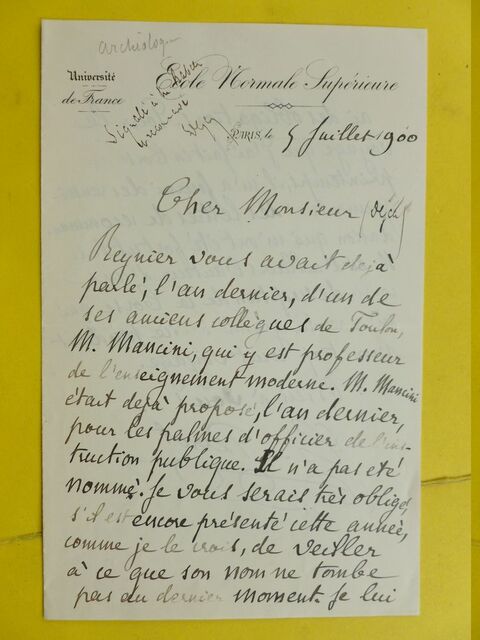 archéologue
Université
de France
École Normale Supérieure
Signalé à
PARIS, le 5 Juillet 1900
Cher Monsieur
Reynier vous avait dejà
parlé, l'an dernier, d'un de
ses anciens collègues de Toulon,
M. Mancini, qui y est professeur
de l'enseignement moderne. M. Mancini
était dejà proposé, l'an dernier,
pour les palmes d'officier de l'ins-
truction publique. Il n'a pas eté
nommé. Je vous serais très obligé,
s'il est encore présenté cette année,
comme je le crois, de veiller
à ce que son nom ne tombe
pas au dernier moment. Je lui